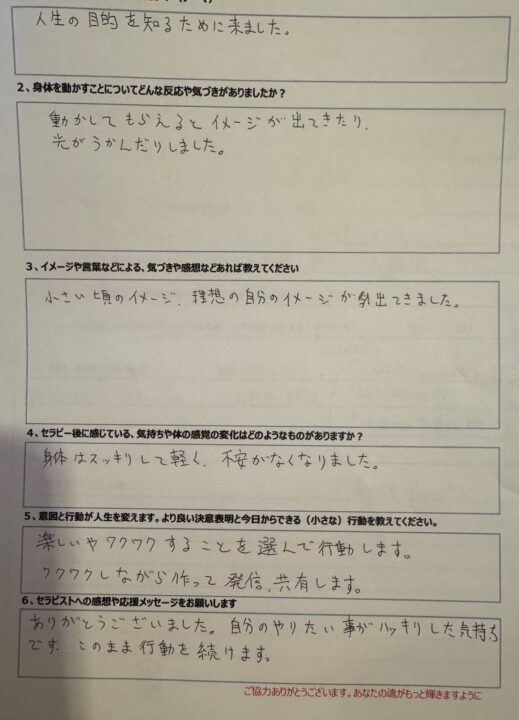 人生の目的を知るために来ました。
2、身体を動かすことについてどんな反応や気づきがありましたか？
動かしてもらえるとイメージが出てきたり、
光がうかんだりしました。
3、イメージや言葉などによる、気づきや感想などあれば教えてください
小さい頃のイメージ、理想の自分のイメージが出てきました。
4、セラピー後に感じている、気持ちや体の感覚の変化はどのようなものがありますか？
身体はスッキリして軽く、不安がなくなりました。
5、意図と行動が人生を変えます。より良い決意表明と今日からできる（小さな）行動を教えてください。
楽しいやワクワクすることを選んで行動します。
ワクワクしながら作って発信、共有します。
6、セラピストへの感想や応援メッセージをお願いします
ありがとうございました。自分のやりたい事がハッキリした気持ち
です。このまま行動を続けます。
ご協力ありがとうございます。あなたの魂がもっと輝きますように